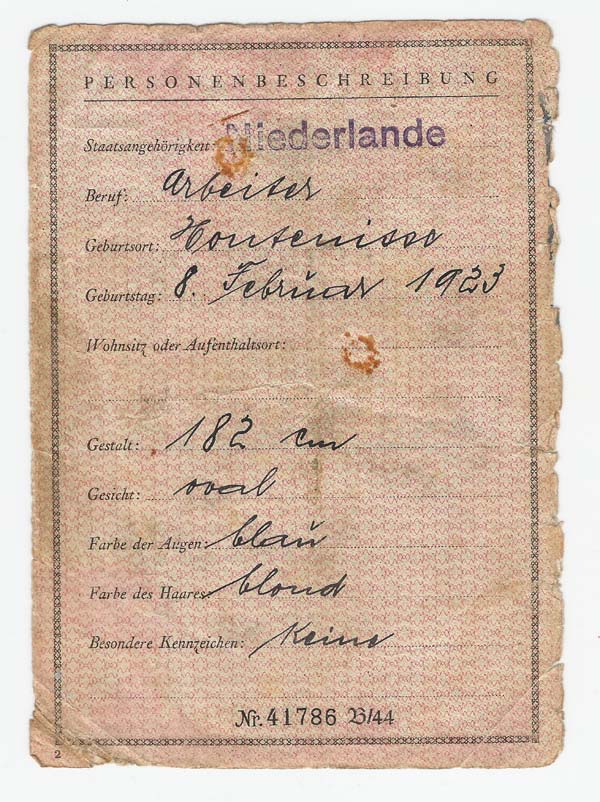 PERSONENBESCHREIBUNG
Staatsangehörigkeit: Niederlande
Beruf: Arbeiter
Geburtsort: Hontenisse
Geburtstag: 8. Februar 1923
Wohnsitz oder Aufenthaltsort:
Gestalt: 182 cm
Gesicht: oval
Farbe der Augen: blau
Farbe des Haares: blond
Besondere Kennzeichen: Keine
Nr. 41786 B/44
2